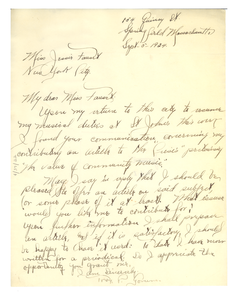 109 Quincy St
Springfield Massachusetts
Sept. 1920
Miss Jessie Fauset
New York City
My dear Miss Fauset
Upon my return to this city to resume
my musical duties at St John's this
I found your communication concerning my
contributing an article to the "Crisis" pertaining
"the value of community music."
May I say in reply that I should be
pleased to offer an article on said subject
or some phase of it at
would you like me to contribute for?
Upon further information I shall prepare
an article, and if it is satisfactory, I should
be happy to have it used. To date I have never
written for a periodical. So I appreciate the
opportunity you grant me.
I am sincerely